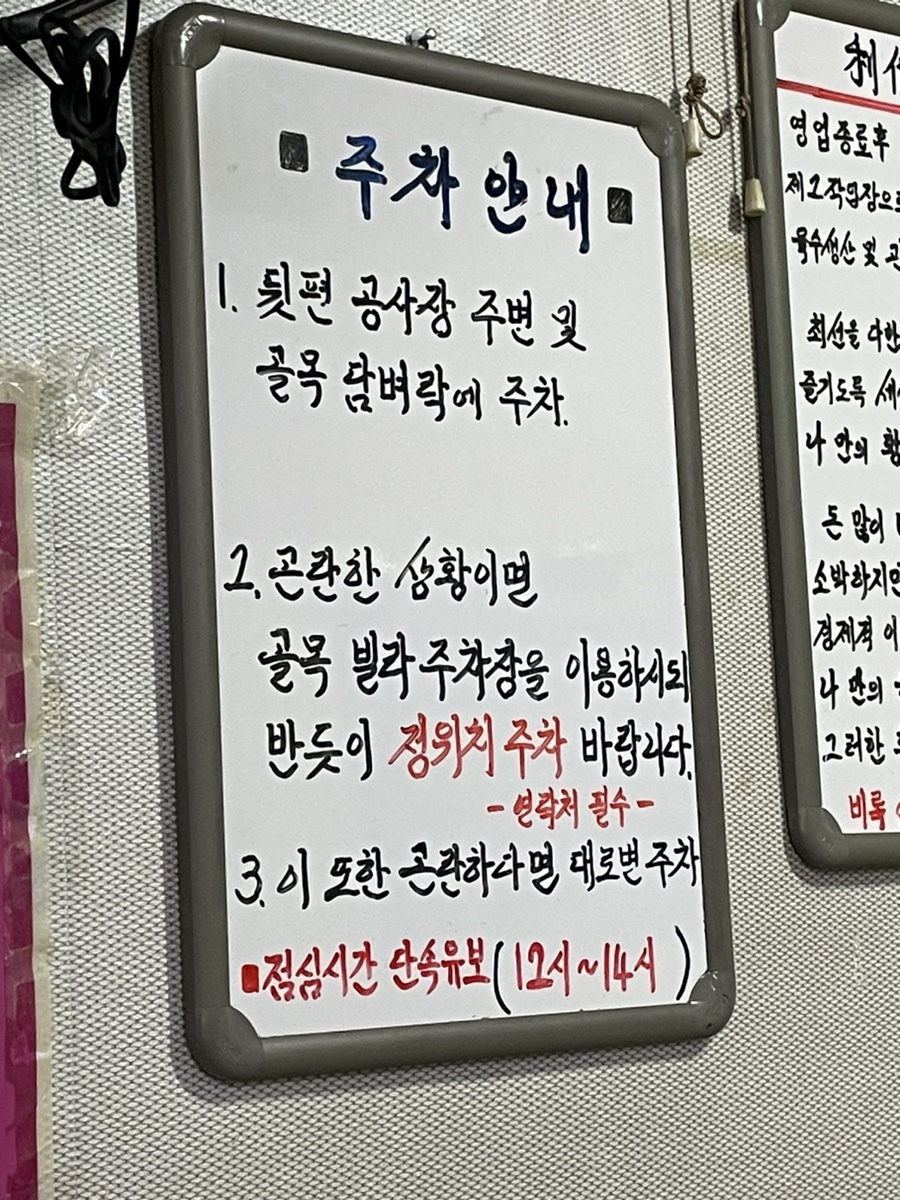 ■ 주차 안내 ■
1. 뒷편 공사장 주변 및
골목 담벼락에 주차.
2. 곤란한 상황이면
골목 빌라 주차장을 이용하시되
반듯이 정위치 주차 바랍니다.
- 연락처 필수 -
3. 이 또한 곤란하다면 대로변 주차
■ 점심시간 단속유보 (12시~14시)
영업종료후
제2작업장으로
육수생산 및
최선을 다한
즐기도록
나 만의
돈 많이
소박하지만
경제적
나 만의
그러한
비록